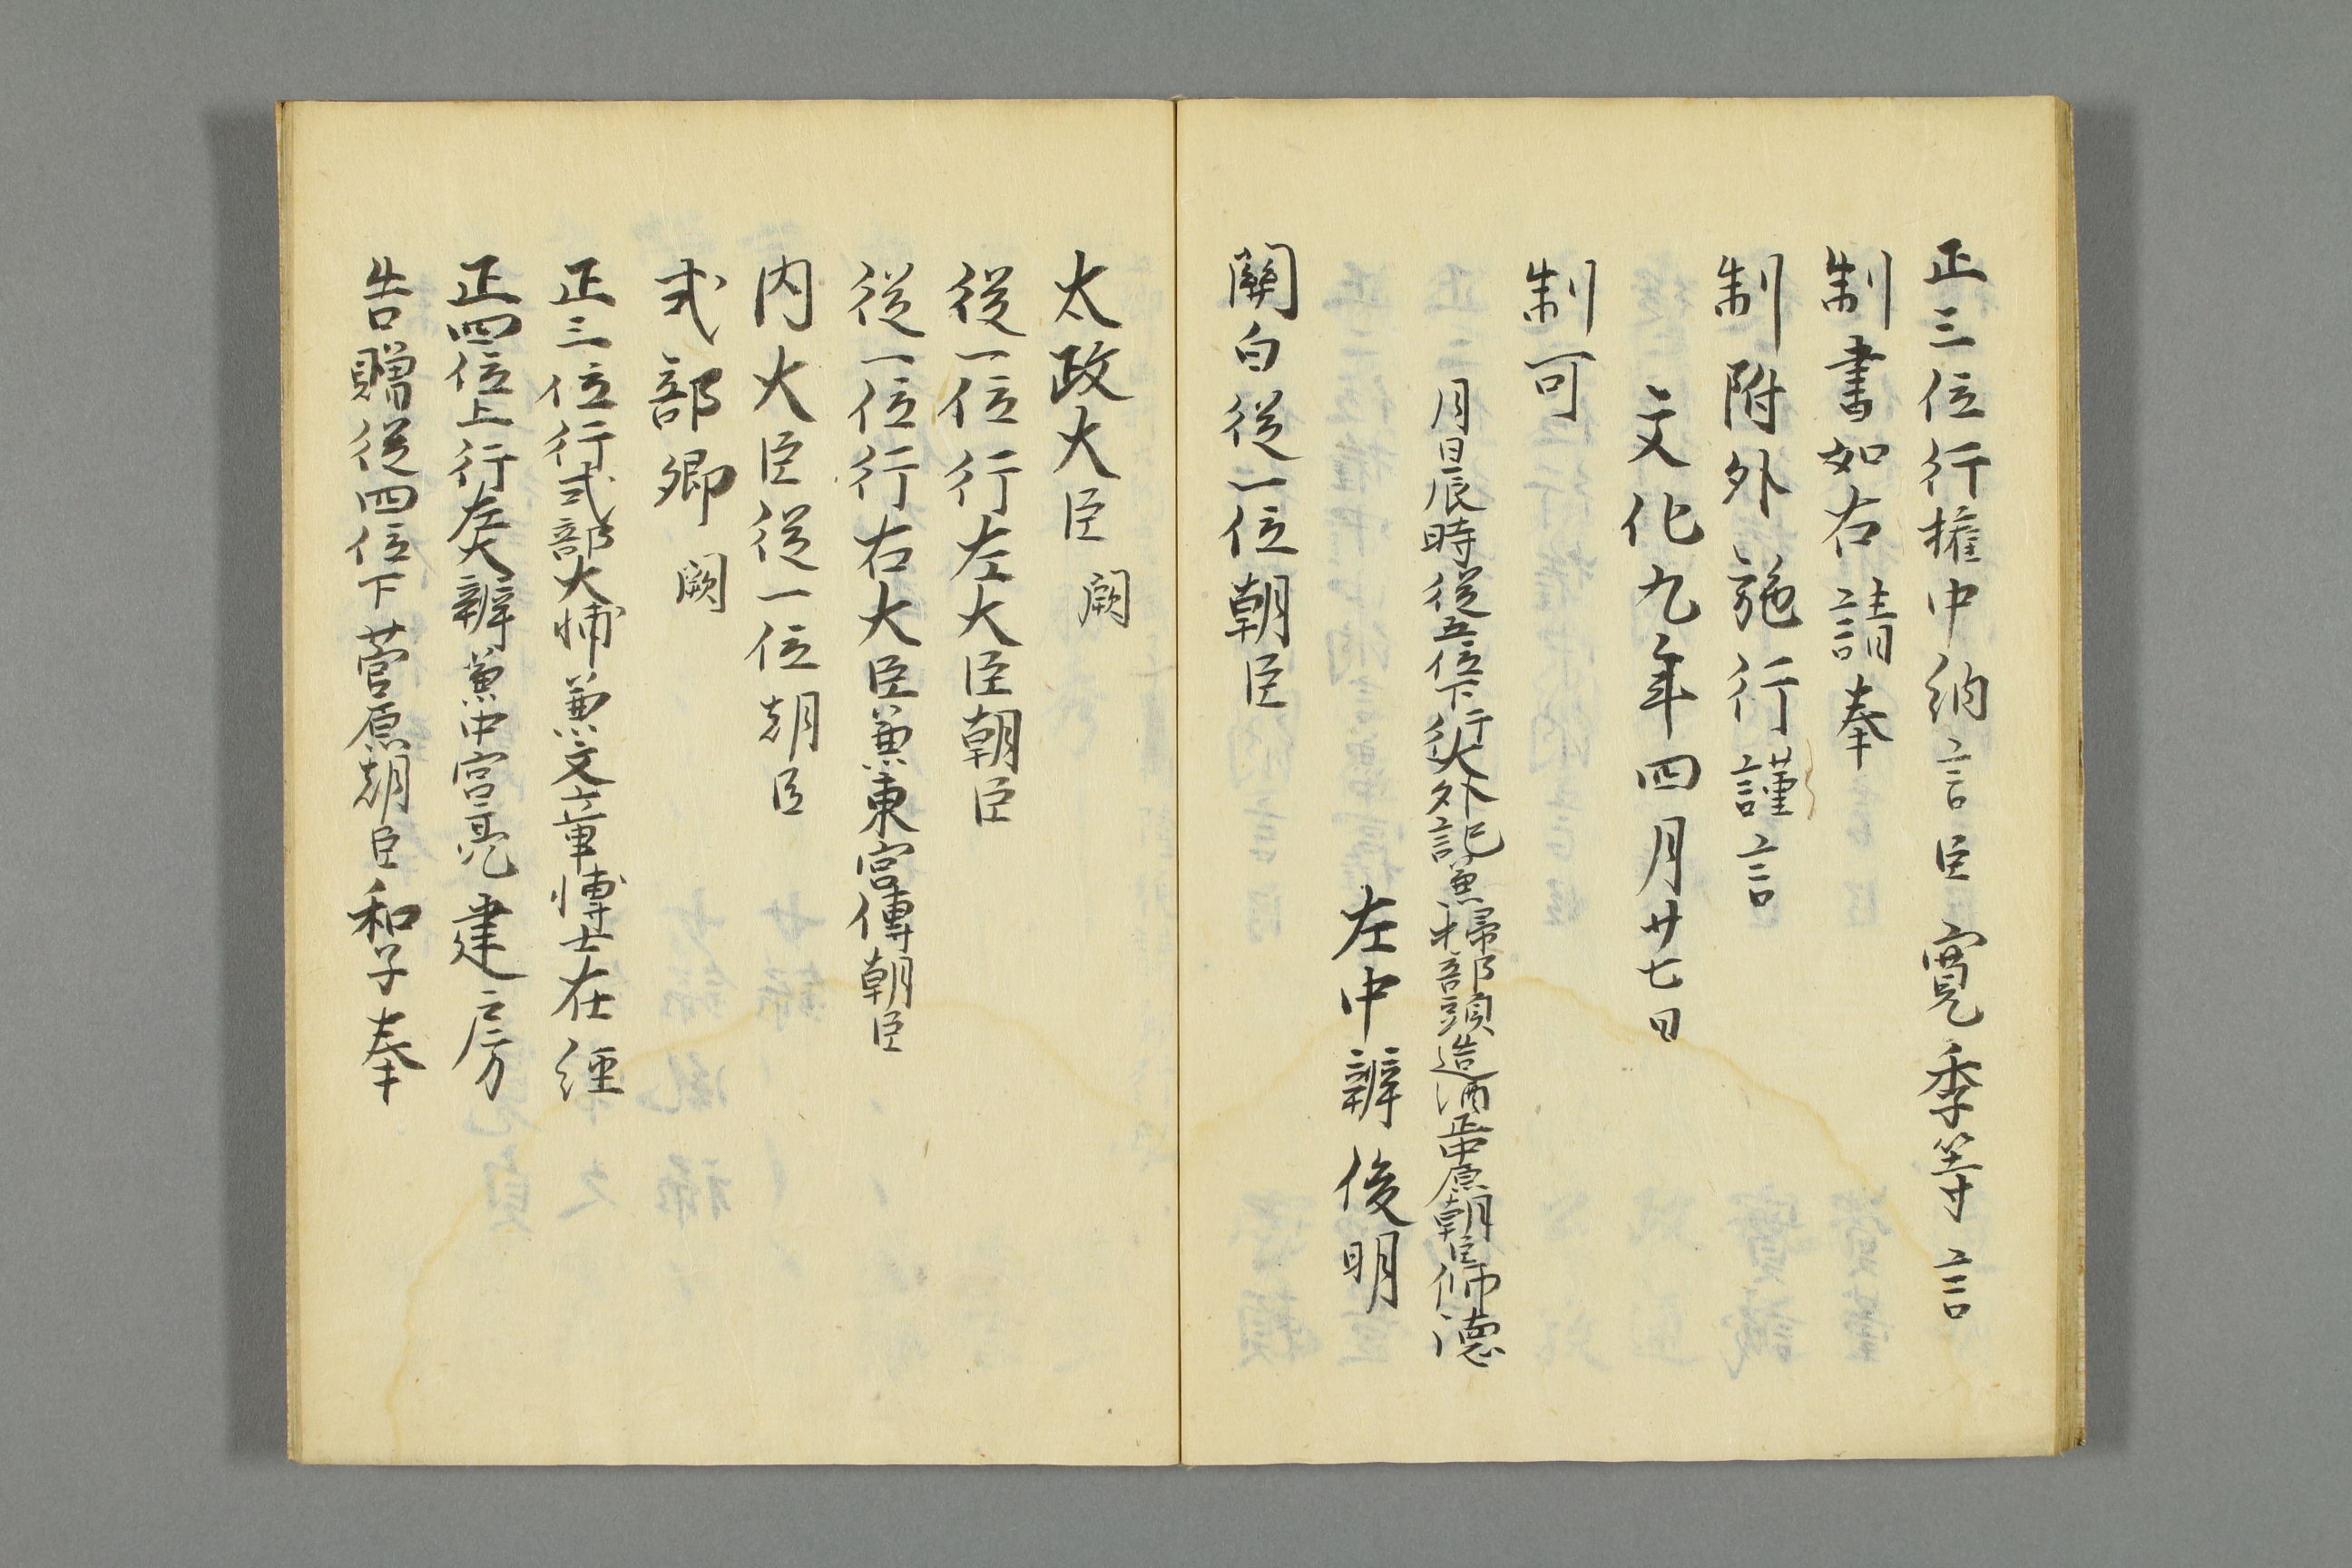 正三位行權中納言臣寬季等言
制書如右請奉
制附外施行謹言
文化九年四月廿七日
制可
月日辰時從五位下行大外記兼掃部頭造酒正中原朝臣師德
左中辨俊明
關白從一位朝臣
太政大臣闕
從一位行左大臣朝臣
從一位行右大臣兼東宮傅朝臣
內大臣從一位朝臣
式部卿闕
正三位行式部大輔兼文章博士在經
正四位上行左大辨兼中宮亮建房
告贈從四位下菅原朝臣和子奉